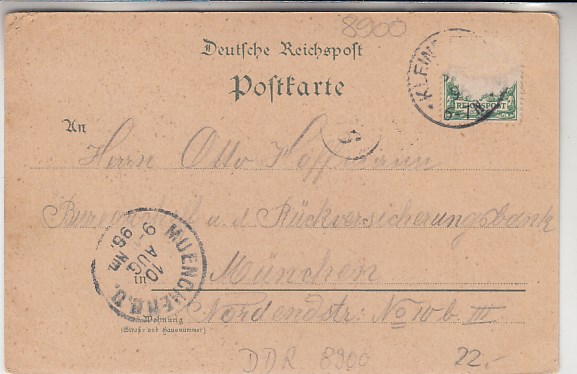 8900
Deutsche Reichspost
Postkarte
KLEIN
REICHSPOST
An
Herrn Otto Hoffmann
u. d. Rückversicherungsbank
in München
Nordendstr: No 10 b. III
MUENCHEN B.O.
10
AUG
9-
95. Nm.
Wohnung
(Straße und Hausnummer)
DDR 8900
22.-